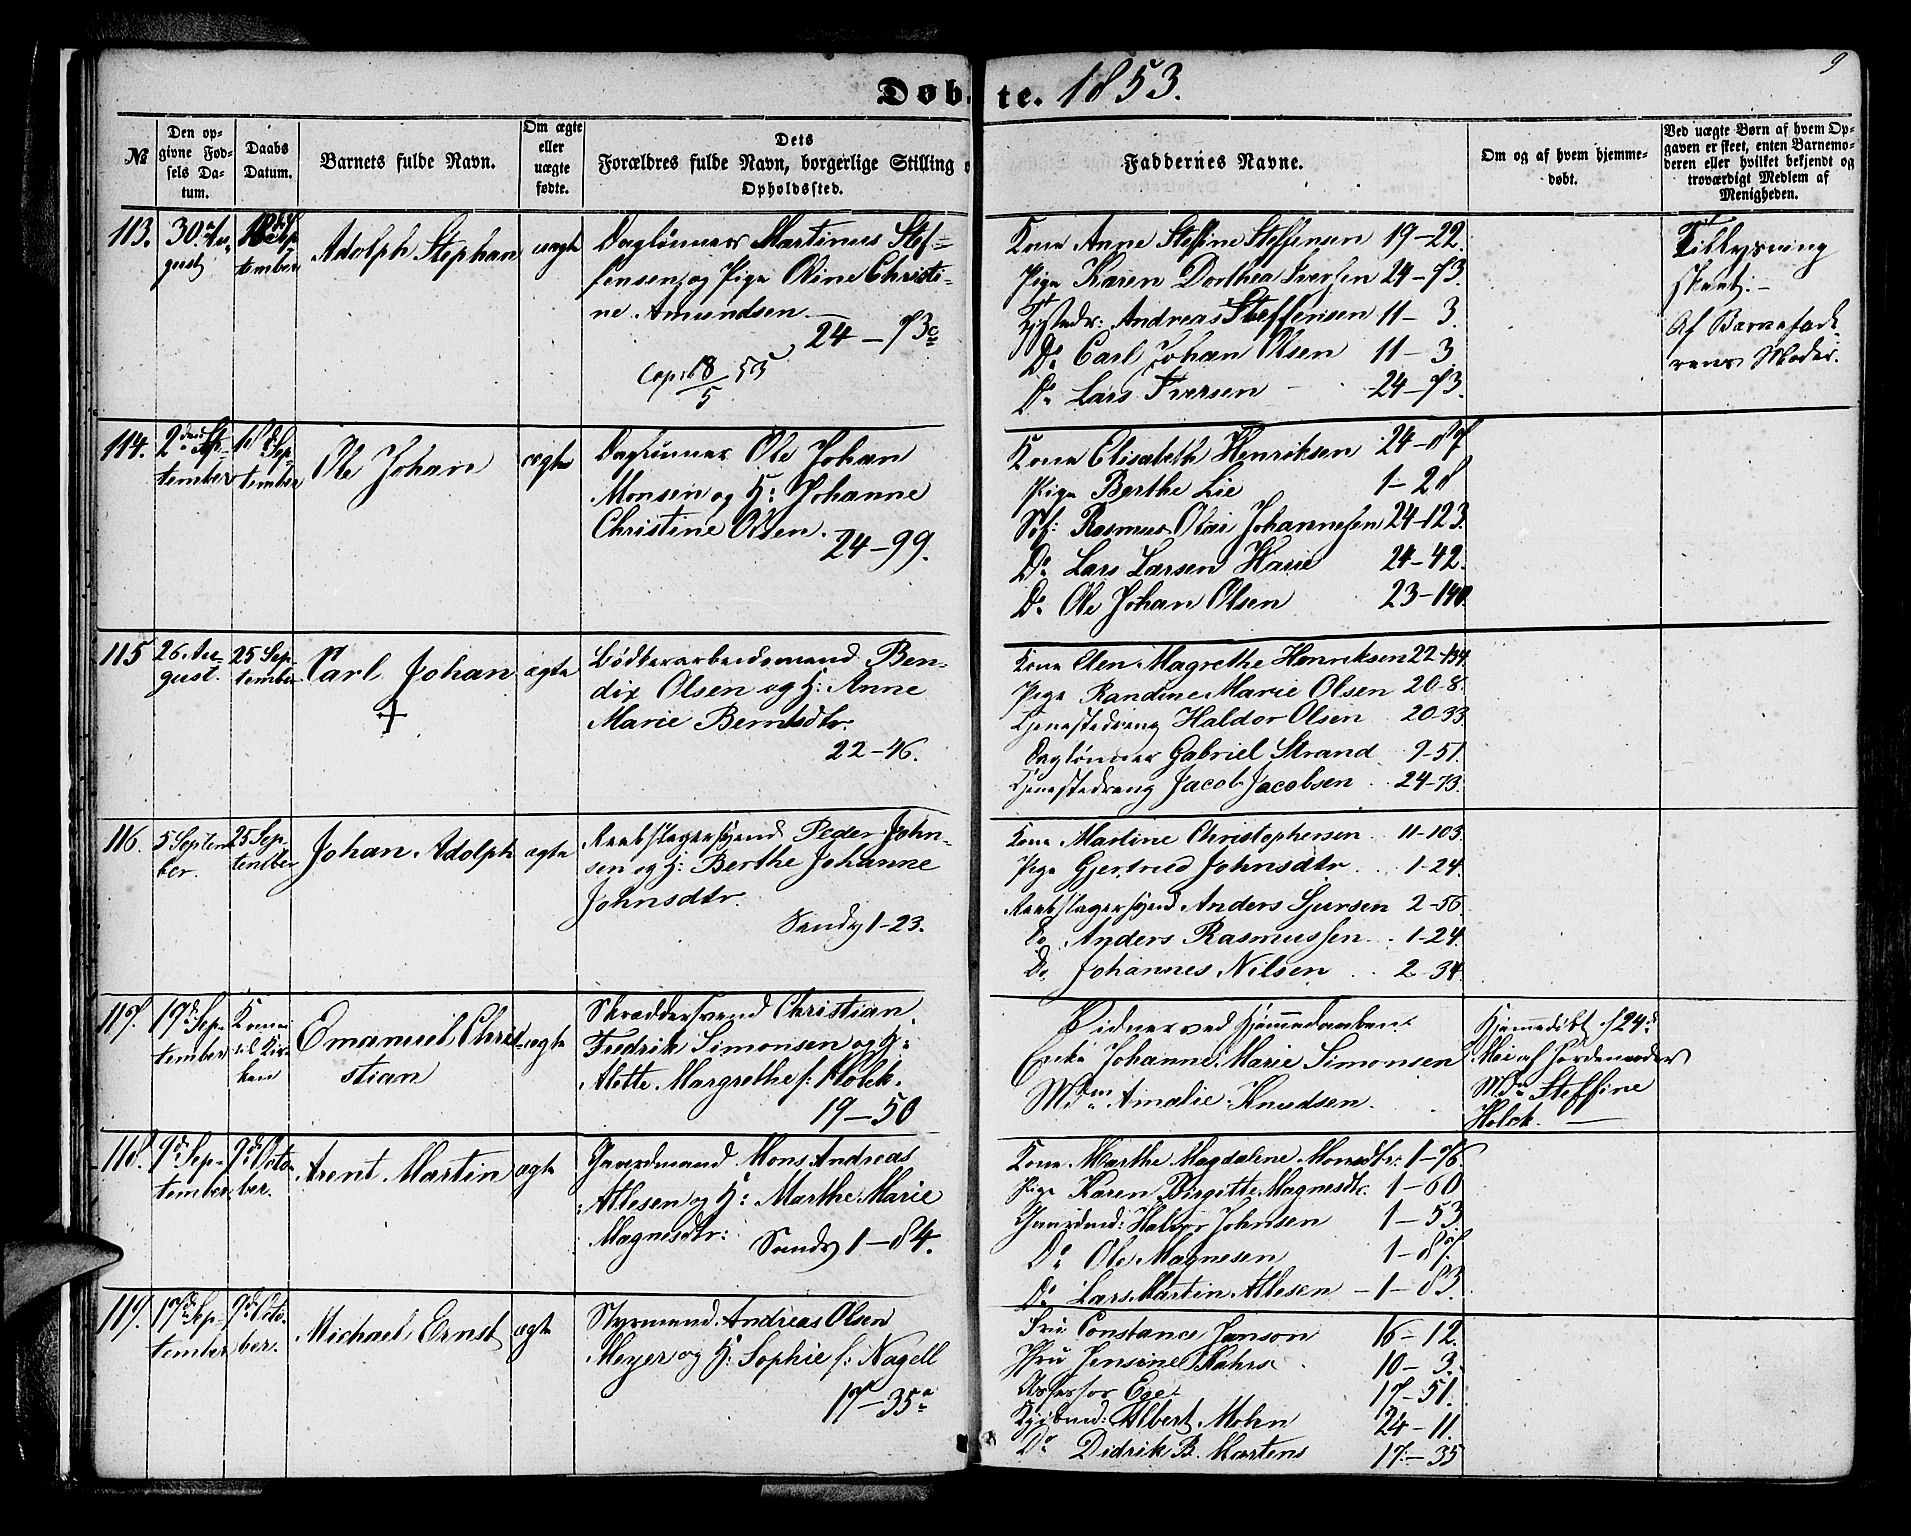 9
Døbte. 1853.
№
Den opgivne Fødsels Datum.
Daabs Datum.
Barnets fulde Navn.
Om ægte eller uægte fødte.
Dets Forældres fulde Navn, borgerlige Stilling o
Opholdssted.
Faddernes Navne.
Om og af hvem hjemmedøbt.
Ved uægte Børn af hvem Opgaven er skeet, enten Barnemoderen eller hvilket bekjendt og troværdigt Medlem af Menigheden.
113.
30 Au-
gust
Sep-
tember
Adolph Stephan
uægte
Dagl&oslash;nner Martinus Stef-
fensen og Pige Oline Christi-
ne Amundsen
24 – 73c
Cop: 18/5 55
Kone Anne Steffine Steffensen 19–22.
Pige Karen Dorthea Iversen 24–73.
Tjstedr: Andreas Steffensen 11–3.
Do Carl Johan Olsen 11–3
Do Lars Iversen 24–73.
Tillysning
skeet.–
Af Barnefade-
rens Moder.
114.
2den Sep-
tember
18d Sep-
tember
Ole Johan
ægte
Dagl&oslash;nner Ole Johan
Monsen og H: Johanne
Christine Olsen.
24–99.
Kone Elisabeth Henriksen 24–87
Pige Berthe Lie 1–28
Rasmus Olai Johannesen 24–123.
Do Lars Larsen Havie 24–42.
Do Ole Johan Olsen 23–140.
115
26 Au-
gust.
25 Sep-
tember
Carl Johan
+
ægte
Bødkerarbeidsmand Ben-
dix Olsen og H: Anne
Marie Berntsdtr.
22–46.
Kone Elen Magrethe Henriksen 22–134.
Pige Randine Marie Olsen 20–8.
Tjenestedreng Haldor Olsen 20–33
Dagl&oslash;nner Gabriel Strand 9–51.
Tjenestedreng Jacob Jacobsen 24–73.
116.
5 Septem-
ber.
25 Sep-
tember
Johan Adolph
ægte
Reebslagersvend Peder John-
sen og H: Berthe Johanne
Johnsdtr.
Sandv 1–23.
Kone Martine Christophersen 11–103.
Pige Gjertrud Johnsdtr 1–24.
Reebslagersvend Anders Sjursen 2–56.
Do Anders Rasmussen 1–24.
Do Johannes Nilsen 2–34.
117.
19d Sep-
tember
Kom ei
til Kir-
ken
Emanuel Chri-
stian
ægte
Skræddersvend Christian
Fredrik Simonsen og H:
Alette Margrethe f: Holck.
19–50
Vidner ved Hjemmedaaben:
Enke Johanne Marie Simonsen
Mdm Amalie Knudsen.
Hjemmedøbt 24d
af Jordemoder
Mdm Steffine
Holck.
118.
9d Sep-
tember
9d Octo-
ber.
Arent Martin
ægte
Gaardmand Mons Andreas
Atlesen og H: Marthe Marie
Magnesdtr:
Sandv 1–84.
Kone Marthe Magdalene Monsdtr: 1–76.
Pige Karen Birgitte Magnesdtr 1–60
Gaardmd: Halvor Johnsen 1–53.
Do Ole Magnesen 1–87.
Do Lars Martin Atlesen – 1–83.
119.
17d Sep-
tember
9d Octo-
ber.
Michael Ernst
ægte
Styrmand Andreas Olsen
Meyer og H: Sophie f: Nagell
17–35a
Fru Constance Janson 16–12.
Jfru Jensine Kahrs 10–3.
Assessor Ege 17–51.
Kjøbmd: Albert Mohn 24–11.
Do Didrik B. Martens 17–35